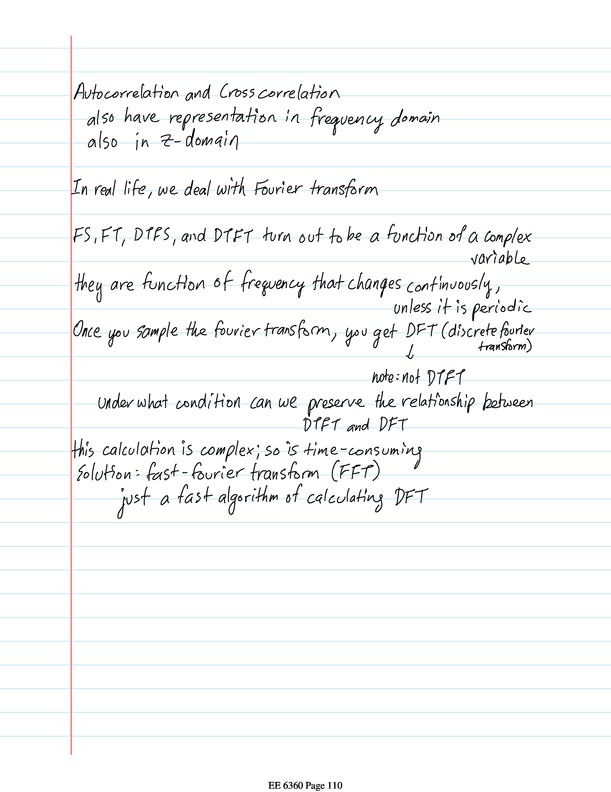 Autocorrelation and Cross correlation
also have representation in frequency domain
also in z-domain
In real life, we deal with Fourier transform
FS, FT, DTFS, and DTFT turn out to be a function of a complex
variable
they are function of frequency that changes continuously,
unless it is periodic
Once you sample the fourier transform, you get DFT (discrete fourier
transform)
↓
note: not DTFT
Under what condition can we preserve the relationship between
DTFT and DFT
this calculation is complex; so is time-consuming
Solution: fast-fourier transform (FFT)
just a fast algorithm of calculating DFT
EE 6360 Page 110